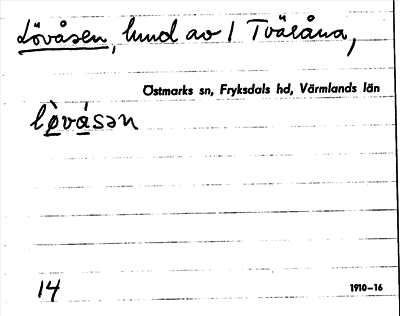 Lövåsen, hmd av 1 Tväråna,
Östmarks sn, Fryksdals hd, Värmlands län
lø̀vásən
14
1910–16